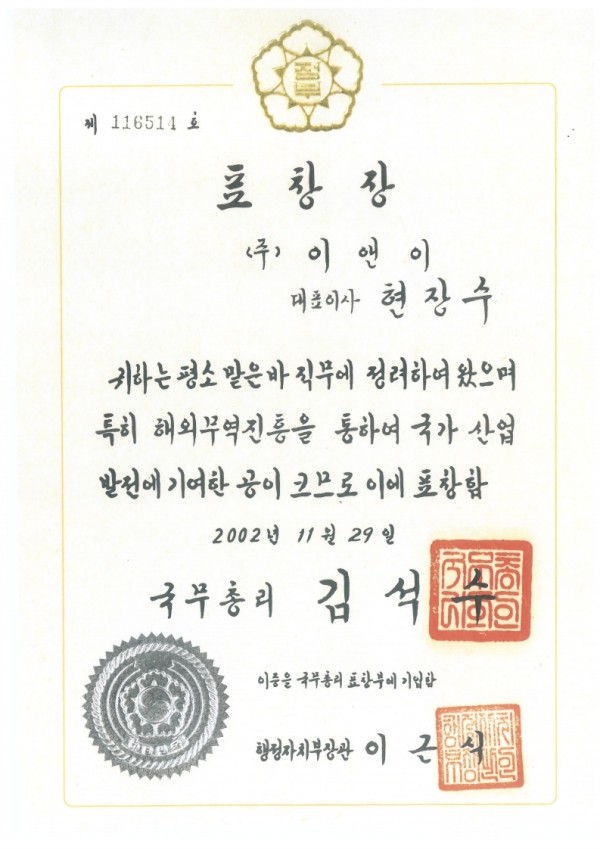 정부
제 116514 호
표 창 장
(주) 이 앤 이
대표이사 현 장 수
귀하는 평소 맡은바 직무에 정려하여 왔으며
특히 해외무역진흥을 통하여 국가 산업
발전에 기여한 공이 크므로 이에 표창함
2002년 11월 29일
국무총리 김 석 수
이증을 국무총리 표창부에 기입함
행정자치부장관 이 근 식